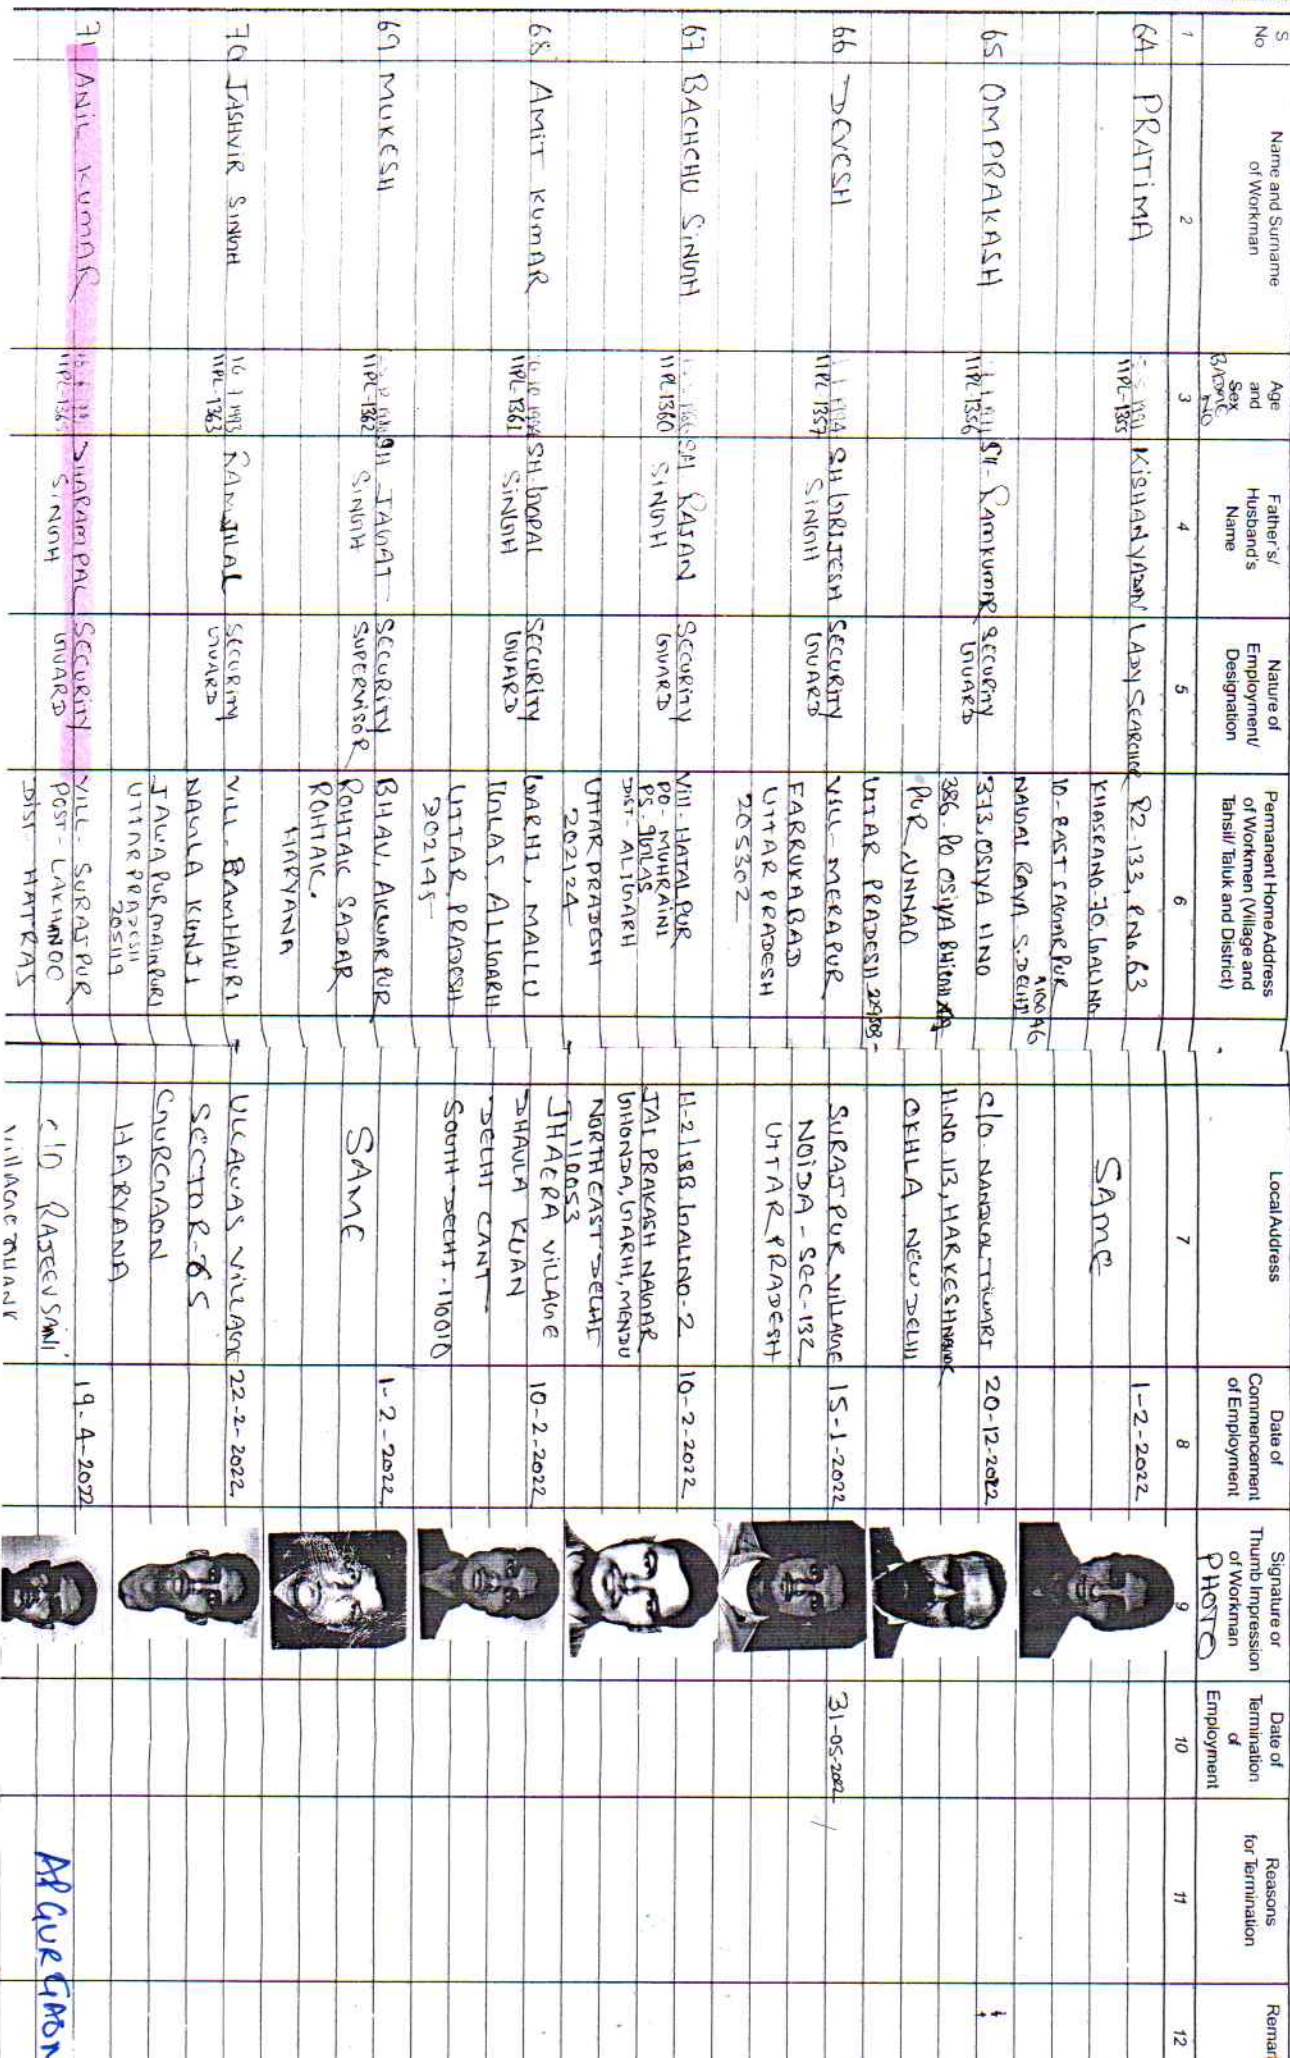 S No
Name and Surname of Workman
Age and Sex
BADGE NO
Father's/ Husband's Name
Nature of Employment/ Designation
Permanent Home Address of Workmen (Village and Tahsil/ Taluk and District)
Local Address
Date of Commencement of Employment
Signature or Thumb Impression of Workman
PHOTO
Date of Termination of Employment
Reasons for Termination
1 2 3 4 5 6 7 8 9 10 11 12
64 PRATIMA
IIPL-1355
KISHAN YADAV
LADY SEARCHER
RZ-133, P.NO. 63
KHASRA NO-70, GALI NO.
10-EAST SAGARPUR
NANGAL RAYA S. DELHI
SAME
1-2-2022
65 OMPRAKASH
IIPL-1356
SH-RAMKUMAR
SECURITY
GUARD
373, OSIYA HNO
386-PO OSIYA
PUR, UNNAO
UTTAR PRADESH
C/O-NANDLAL TIWARI
H.NO. 113, HARKESH NAGAR
OKHLA, NEW DELHI
20-12-2022
66 DEVESH
IIPL-1357
SH GIRIJESH
SINGH
SECURITY
GUARD
VILL-MERAPUR
FARRUKABAD
UTTAR PRADESH
205302
SURAJPUR VILLAGE
NOIDA-SEC-132
UTTAR PRADESH
15-1-2022
31-05-2022
67 BACHCHU SINGH
IIPL-1360
SH RAJAN
SINGH
SECURITY
GUARD
Vill-HATALPUR
PO-MUHRAINI
PS-IGLAS
DIST-ALIGARH
UTTAR PRADESH
202124
H-2/18B, GALI NO-2
JAI PRAKASH NAGAR
GHONDA, GARHI, MENDU
NORTH EAST DELHI
110053
10-2-2022
68 AMIT KUMAR
IIPL-1361
SH-GOPAL
SINGH
SECURITY
GUARD
GARHI, MALLU
IGLAS, ALIGARH
UTTAR, PRADESH
202145
JHAERA VILLAGE
DHAULA KUAN
DELHI CANT
SOUTH-DELHI-110010
10-2-2022
69 MUKESH
IIPL-1362
SH JAGAT
SINGH
SECURITY
SUPERVISOR
BHAU, AKWARPUR
ROHTAK SADAR
ROHTAK.
HARYANA
SAME
1-2-2022
70 JASHVIR SINGH
16 7 1993
IIPL-1363
RAMJILAL
SECURITY
GUARD
VILL-BAMHAURI
NAGLA KUNJI
JALWAPUR MAINPURI
UTTAR PRADESH
205119
ULLAWAS VILLAGE
SECTOR-65
GURGAON
HARYANA
22-2-2022
71 ANIL KUMAR
DHARAMPAL
SINGH
SECURITY
GUARD
VILL-SURAJPUR
POST-LAKHNOO
DIST HATRAS
C/O RAJEEV SAINI
19-4-2022
GURGAON